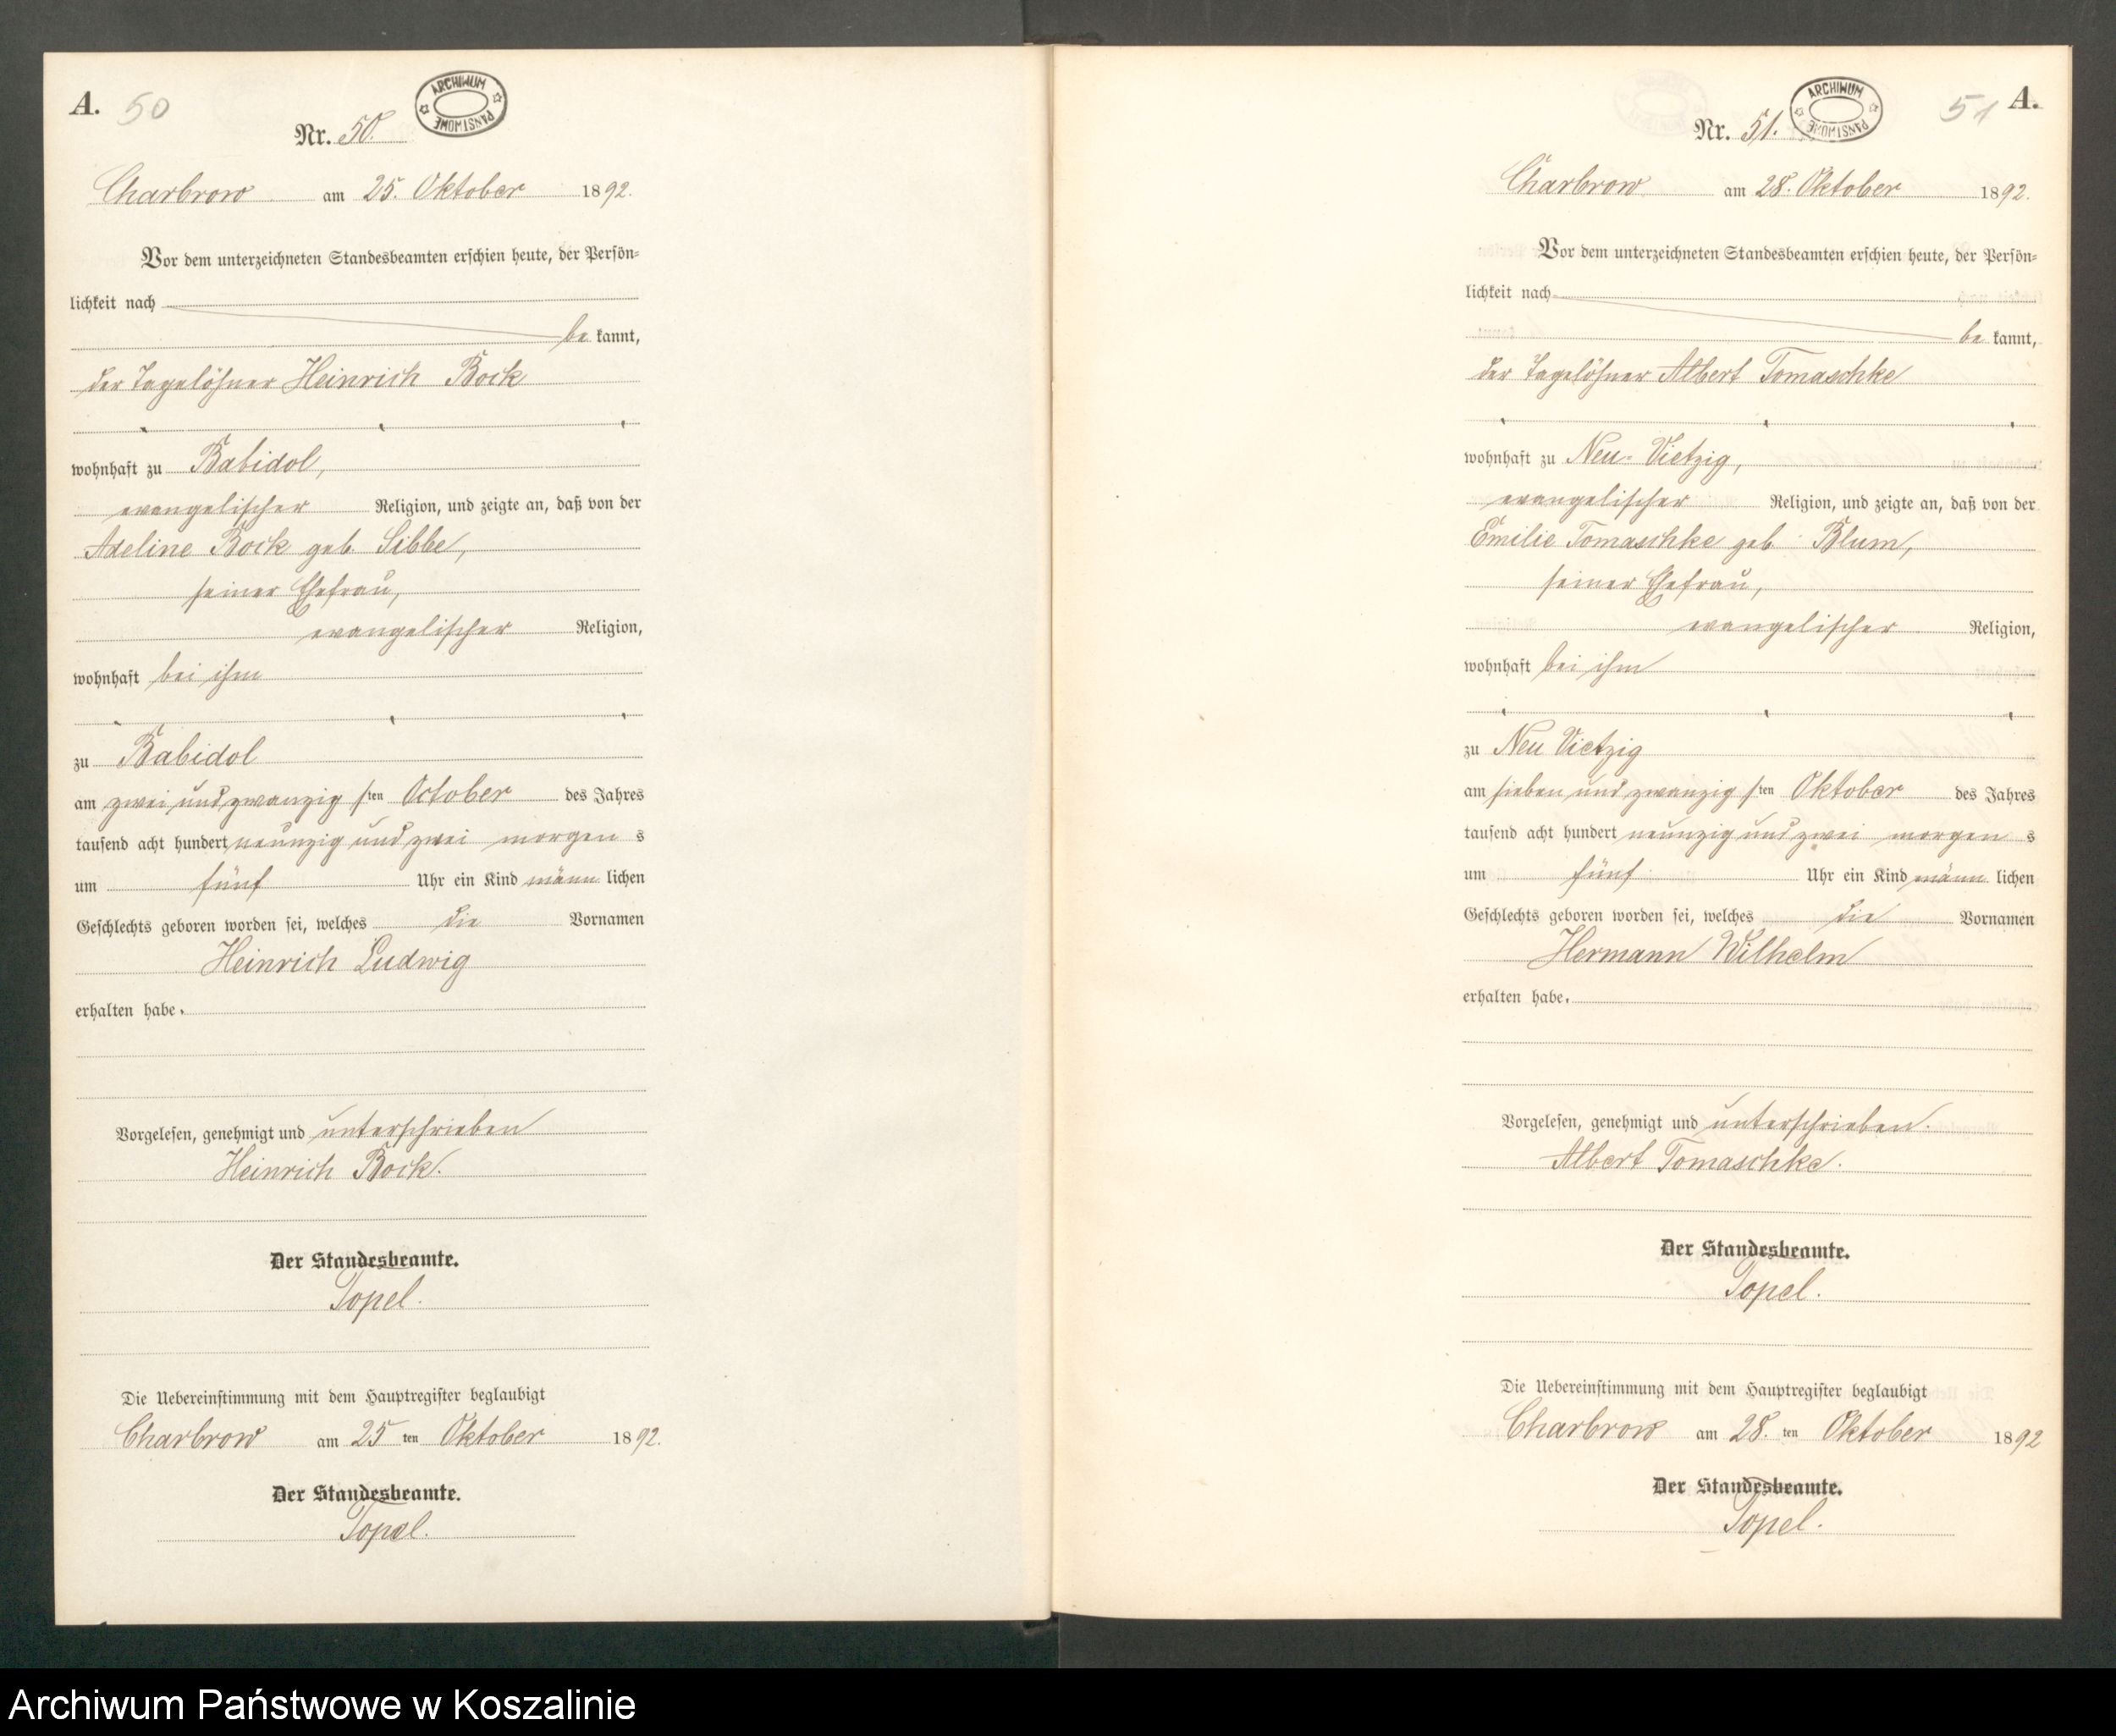 A. 50
ARCHIWUM PAŃSTWOWE
Nr. 50.
Charbrow am 25. Oktober 1892.
Vor dem unterzeichneten Standesbeamten erschien heute, der Persön-
lichkeit nach
be kannt,
der Tagelöhner Heinrich Bock
wohnhaft zu Babidol,
evangelischer Religion, und zeigte an, daß von der
Adeline Bock geb. Sibbe,
seiner Ehefrau,
evangelischer Religion,
wohnhaft bei ihm
zu Babidol
am zwei und zwanzig sten October des Jahres
tausend acht hundert neunzig und zwei morgen s
um fünf Uhr ein Kind männ lichen
Geschlechts geboren worden sei, welches die Vornamen
Heinrich Ludwig
erhalten habe.
Vorgelesen, genehmigt und unterschrieben
Heinrich Bock.
Der Standesbeamte.
Topel.
Die Uebereinstimmung mit dem Hauptregister beglaubigt
Charbrow am 25 ten Oktober 1892.
Der Standesbeamte.
Topel.
51 A.
ARCHIWUM PAŃSTWOWE
Nr. 51.
Charbrow am 28. Oktober 1892.
Vor dem unterzeichneten Standesbeamten erschien heute, der Persön-
lichkeit nach
be kannt,
der Tagelöhner Albert Tomaschke
wohnhaft zu Neu-Vietzig,
evangelischer Religion, und zeigte an, daß von der
Emilie Tomaschke geb. Blum,
seiner Ehefrau,
evangelischer Religion,
wohnhaft bei ihm
zu Neu Vietzig
am sieben und zwanzig sten Oktober des Jahres
tausend acht hundert neunzig und zwei morgen s
um fünf Uhr ein Kind männ lichen
Geschlechts geboren worden sei, welches die Vornamen
Hermann Wilhelm
erhalten habe.
Vorgelesen, genehmigt und unterschrieben.
Albert Tomaschke.
Der Standesbeamte.
Topel.
Die Uebereinstimmung mit dem Hauptregister beglaubigt
Charbrow am 28. ten Oktober 1892
Der Standesbeamte.
Topel.
Archiwum Państwowe w Koszalinie